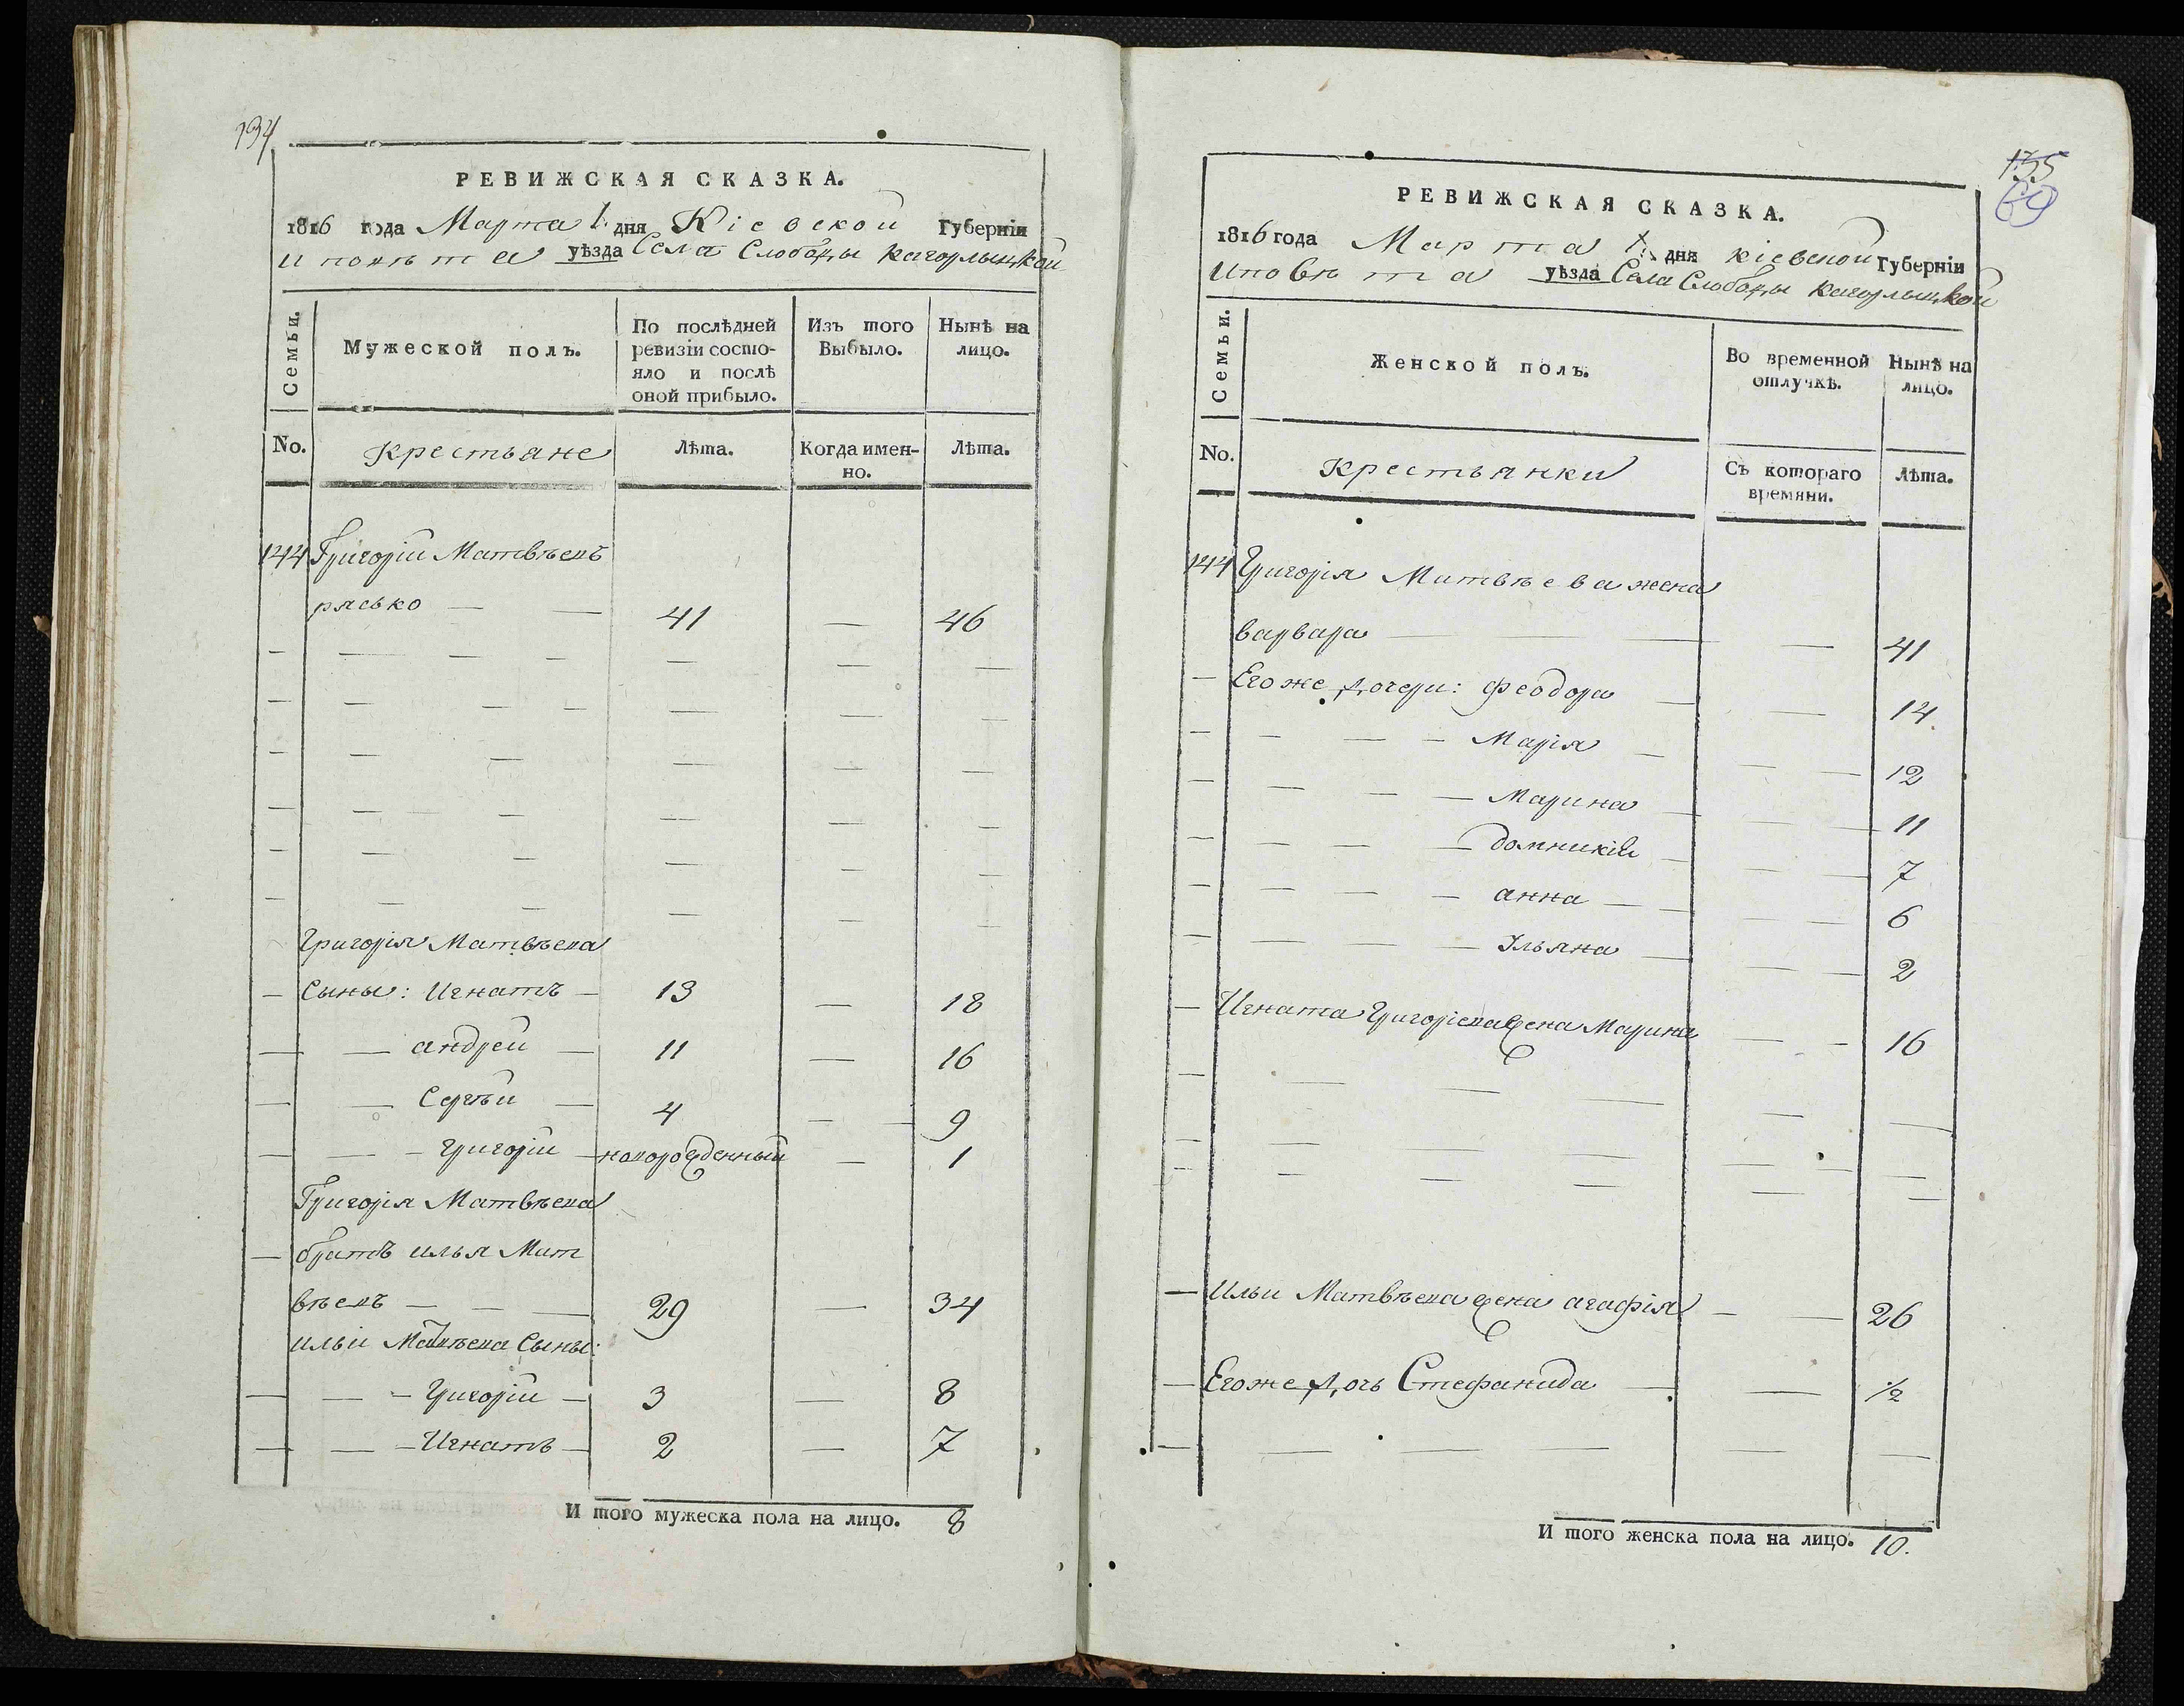 134
РЕВИЖСКАЯ СКАЗКА.
1816 года Марта 1. дня Кіевской Губерніи
И повѣта уѣзда Села Слободы Кагорлыцкой
Семьи.
Мужеской полъ.
По послѣдней ревизіи состо-яло и послѣ оной прибыло.
Изъ того Выбыло.
Нынѣ на лицо.
No.
Крестьяне
Лѣта.
Когда имен-но.
Лѣта.
144 Григорій Матвѣевъ
рясько — — 41 — 46
Григорія Матвѣева
— Сыны: Игнатъ — 13 — 18
— — андрей — 11 — 16
— — Сергѣй — 4 — — 9
— — — григорій — новорожденный — 1
Григорія Матвѣева
— братъ илья Мат
вѣевъ — — — 29 — 34
ильи Матвѣева Сыны:
— — — Григорій — 3 — 8
— — — Игнатъ — 2 — 7
И того мужеска пола на лицо. 8
155
69
РЕВИЖСКАЯ СКАЗКА.
1816 года Марта 1. дня кіевской Губерніи
И повѣта уѣзда Села Слободы Кагорлыцкой
Семьи.
Женской полъ.
Во временной отлучкѣ.
Нынѣ на лицо.
No.
Крестьянки
Съ котораго времяни.
Лѣта.
144 Григорія Матвѣева жена
варвара — — — — 41
— Егоже дочери: феодора — — 14.
— — — — Марія — — — 12
— — — — Марина — — — 11
— — — — домникія — — — 7
— — — — анна — — — — 6
— — — — — Ульяна — — — 2
— Игната Григоріева жена Марина — — 16
— Ильи Матвѣева жена агафія — — 26
— Егоже дочь Стефанида — — ½
И того женска пола на лицо. 10.